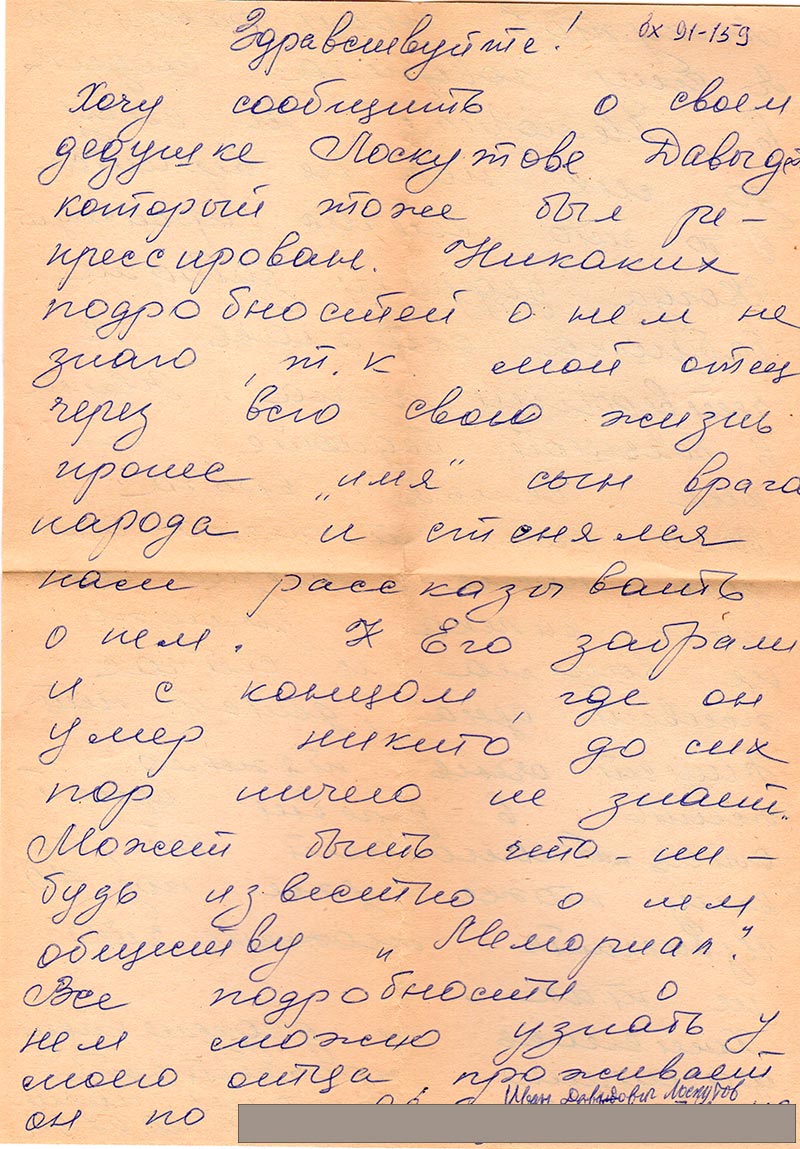 Здравствуйте! вх 91-159
Хочу сообщить о своем
дедушке Лоскутове Давыде
который тоже был ре-
прессирован. Никаких
подробностей о нем не
знаю, т.к. мой отец
через всю свою жизнь
пронес „имя" сын врага
народа и стеснялся
нам рассказывать
о нем. Его забрали
и с концом, где он
умер никто до сих
пор ничего не знает.
Может быть что-ни-
будь известно о нем
обществу „Мемориал".
Все подробности о
нем можно узнать у
моего отца, проживает
Иван Давыдович Лоскутов
он по